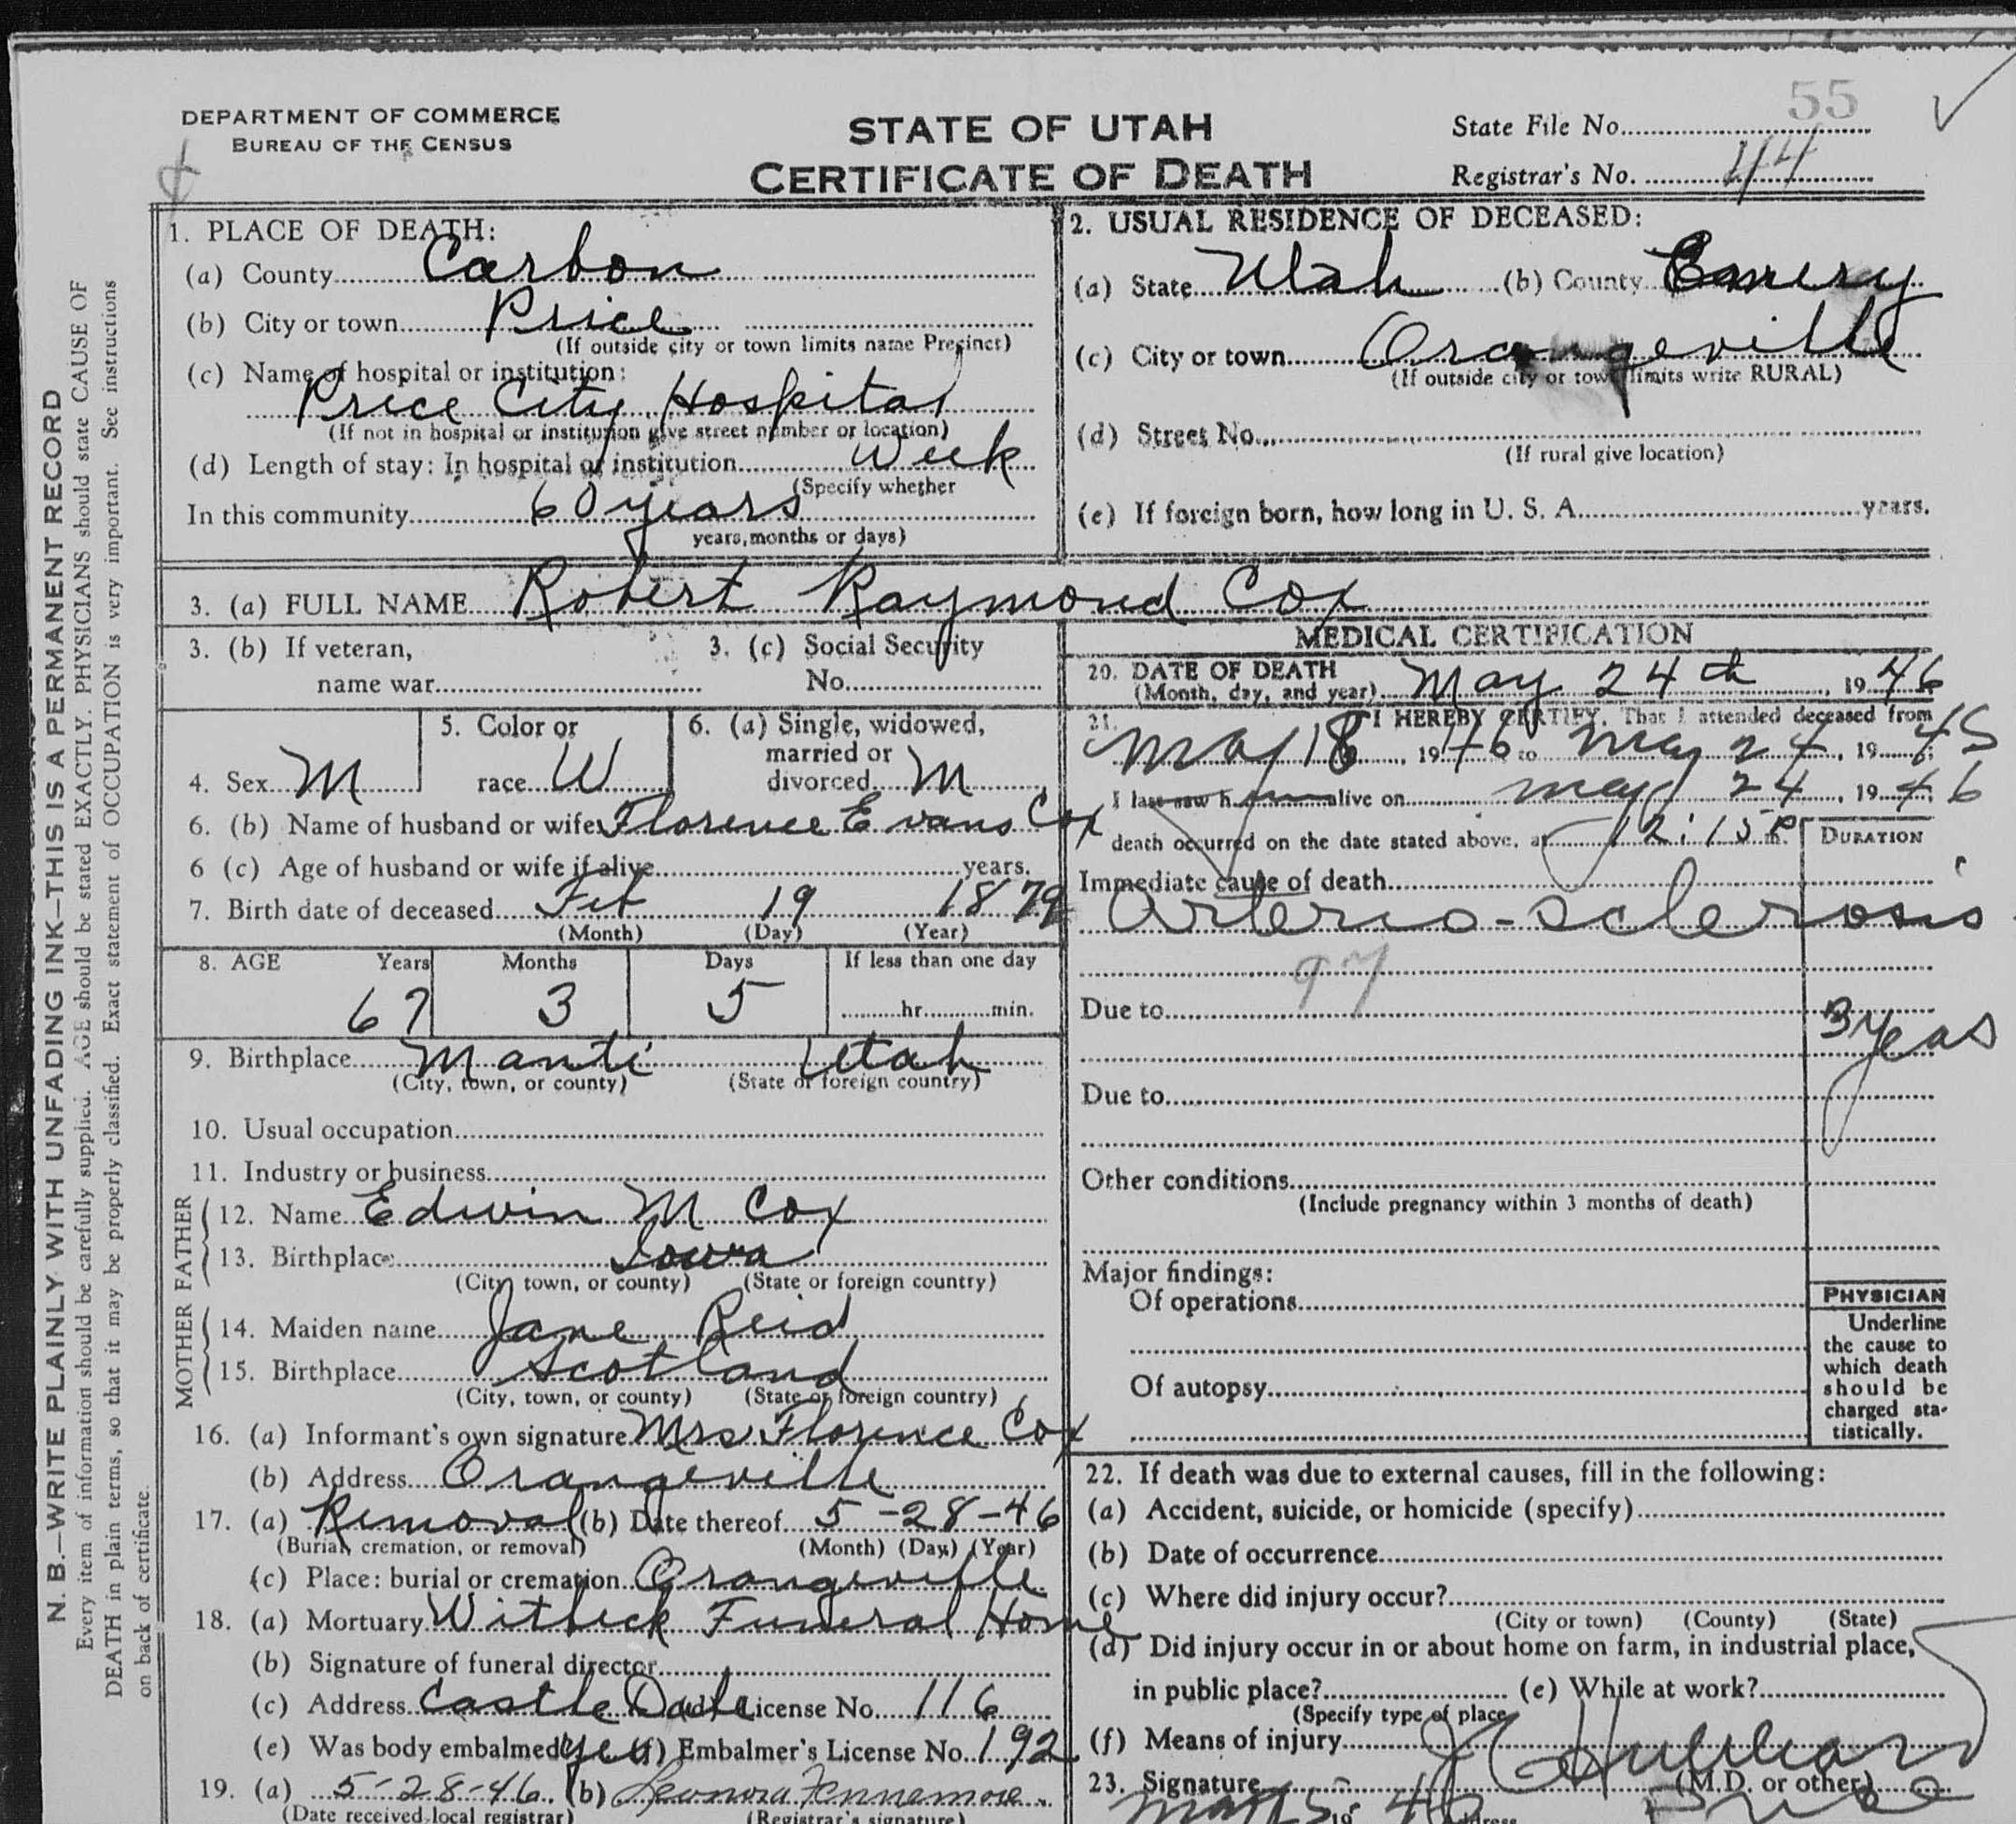 55
DEPARTMENT OF COMMERCE
BUREAU OF THE CENSUS
STATE OF UTAH
CERTIFICATE OF DEATH
State File No.
Registrar's No. 44
N. B.—WRITE PLAINLY WITH UNFADING INK—THIS IS A PERMANENT RECORD
Every item of information should be carefully supplied. AGE should be stated EXACTLY. PHYSICIANS should state CAUSE OF
DEATH in plain terms, so that it may be properly classified. Exact statement of OCCUPATION is very important. See instructions
on back of certificate.
1. PLACE OF DEATH:
(a) County Carbon
(b) City or town Price
(If outside city or town limits name Precinct)
(c) Name of hospital or institution:
Price City Hospital
(If not in hospital or institution give street number or location)
(d) Length of stay: In hospital or institution Week
(Specify whether
In this community 60 years
years, months or days)
2. USUAL RESIDENCE OF DECEASED:
(a) State Utah (b) County Emery
(c) City or town Orangeville
(If outside city or town limits write RURAL)
(d) Street No.
(If rural give location)
(e) If foreign born, how long in U. S. A. years.
3. (a) FULL NAME Robert Raymond Cox
3. (b) If veteran,
name war
3. (c) Social Security
No.
4. Sex M
5. Color or
race W
6. (a) Single, widowed,
married or
divorced M
6. (b) Name of husband or wife Florence Evans Cox
6 (c) Age of husband or wife if alive years.
7. Birth date of deceased Feb 19 1879
(Month) (Day) (Year)
8. AGE Years Months Days If less than one day
67 3 5 hr. min.
9. Birthplace Manti Utah
(City, town, or county) (State or foreign country)
10. Usual occupation
11. Industry or business
FATHER
12. Name Edwin M Cox
13. Birthplace Iowa
(City town, or county) (State or foreign country)
MOTHER
14. Maiden name Jane Reid
15. Birthplace Scotland
(City, town, or county) (State or foreign country)
16. (a) Informant's own signature Mrs Florence Cox
(b) Address Orangeville
17. (a) Removal (b) Date thereof 5-28-46
(Burial, cremation, or removal) (Month) (Day) (Year)
(c) Place: burial or cremation Orangeville
18. (a) Mortuary Witbeck Funeral Home
(b) Signature of funeral director
(c) Address Castle Dale (d) License No. 116
(e) Was body embalmed yes (f) Embalmer's License No. 192
19. (a) 5-28-46 (b) Leonora Fennemore
(Date received local registrar) (Registrar's signature)
MEDICAL CERTIFICATION
20. DATE OF DEATH
(Month, day, and year) May 24th, 1946
21. I HEREBY CERTIFY, That I attended deceased from
May 18, 1946 to May 24, 1945
I last saw h im alive on May 24, 1946
death occurred on the date stated above, at 12:15 P m.
DURATION
Immediate cause of death
Arterio-sclerosis
97
Due to
3 years
Due to
Other conditions
(Include pregnancy within 3 months of death)
Major findings:
Of operations
Of autopsy
PHYSICIAN
Underline
the cause to
which death
should be
charged sta-
tistically.
22. If death was due to external causes, fill in the following:
(a) Accident, suicide, or homicide (specify)
(b) Date of occurrence
(c) Where did injury occur?
(City or town) (County) (State)
(d) Did injury occur in or about home on farm, in industrial place,
in public place? (e) While at work?
(Specify type of place
(f) Means of injury
23. Signature Hubbard (M.D. or other)
19 Address Price